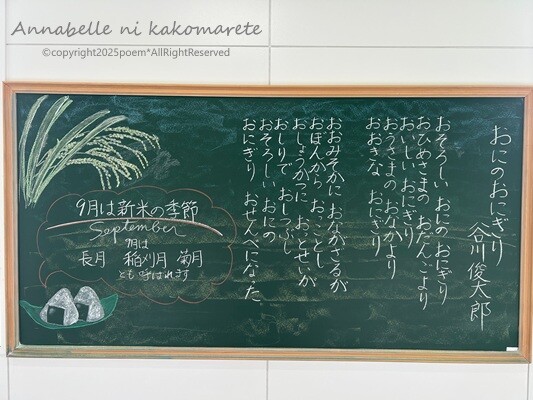 Annabelle ni kakomarete
©copyright2025poem*AllRightReserved
おにのおにぎり
谷川俊太郎
おそろしい おにの おにぎり
おひめさまの おだんごより
おいしい おにぎり
おうさまの おなかより
おおきな おにぎり
おおみそかに おながさるが
おぼんから おっことし
おしょうがつに おっとせいが
おしりで おしつぶし
おそろしい おにの
おにぎり おせんべになった
9月は新米の季節
September
9月は
長月 稲刈月 菊月
とも呼ばれます